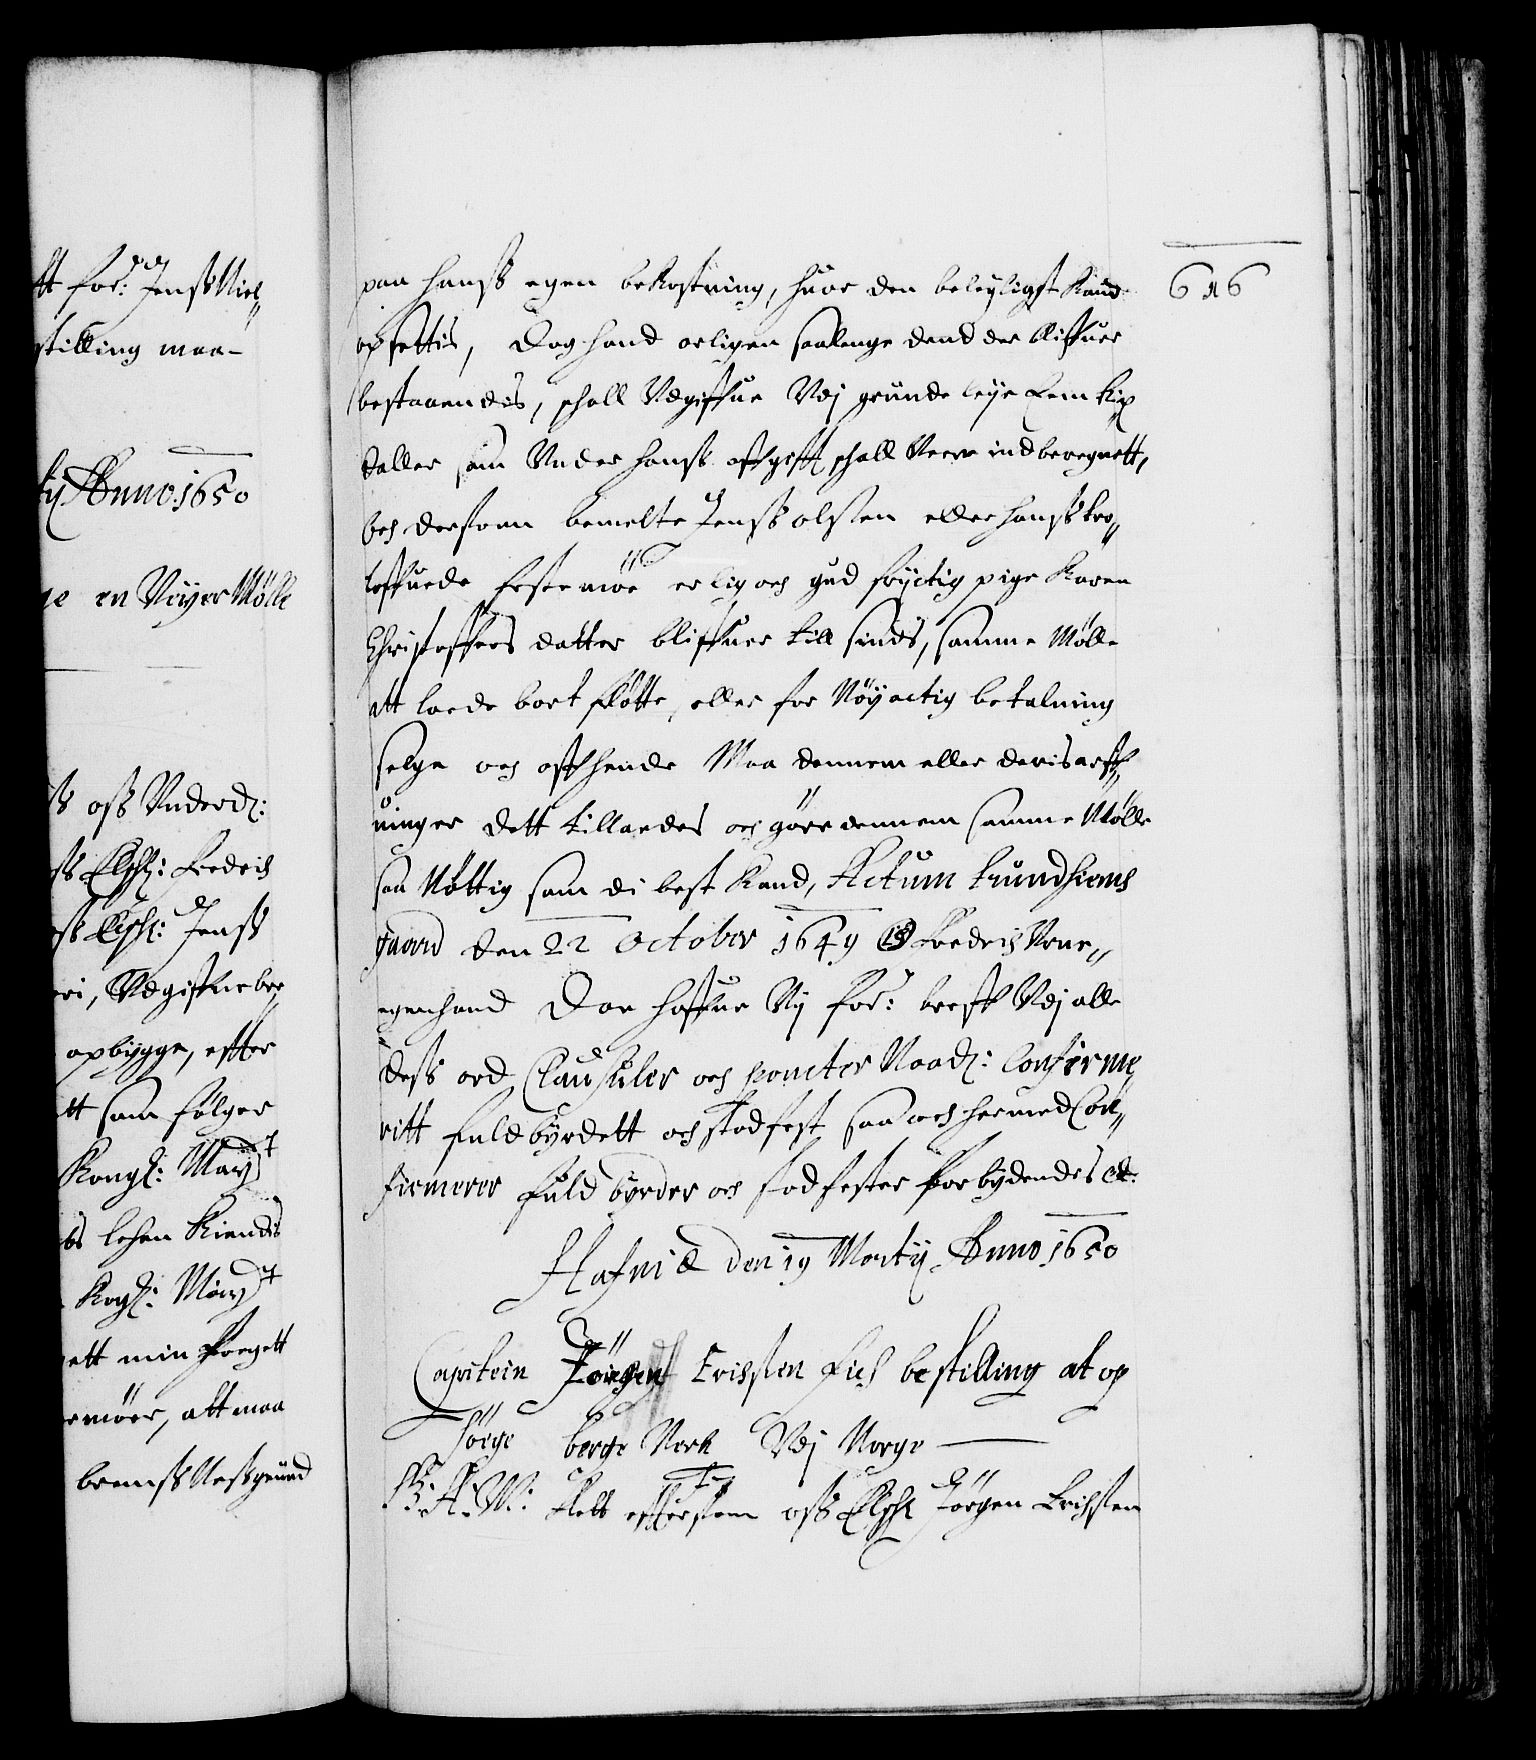 tt for: Jenss Niel„
stilling maa–
tij Anno 1650
ge en Nÿer Mölle
ss oss Underd:
ss Elschl: Fredrich
oss Elschl: Jenss
eri, Udgiffue bre
opbÿgge, effter
tt som følger
Kongl: Maÿt
bs lehen Kiendis
Kogl: Maÿt
ett min Forgett
emöer, att maa
bremss Nessgrund
616
paa hanss egen bekostning, huor den beleyligst kand
opsettis, Dog hand aarligen saalenge dend der bliffuer
bestaaendes, schall Udgiffue Udj grunde leÿe Fem Rix
daller som Under hanss affgifft schall Verre indberegnett,
och dersom bemelte Jenss olssen eller hanss tro„
loffuede Festemöe erlig och gud frÿctig pige Karen
Christoffers datter bliffuer till sinds, samme Mölle
att lade bort fløtte, eller for Nöÿactig betalning
selge och affhende Maa dennem eller deris arff„
uinger dett tillades och göre dennem samme Mölle
saa Nöttig som di best kand, Actum Trundhiems
gaard den 22 October 1649 LS Fredrich Urne„
egenhand Da haffue Vj for: breff Udj alle
dess ord, Clausuler och poncter Naad: Confirme„
ritt fuldbÿrdett och stadfest saa och hermed Con„
firmerer fuld bÿrder och stadfester Forbÿdendes etc.
Hafniæ den 19 Martij Anno 1650
Capitein Jörgen Erichsen Fich bestilling at op
söege berge Verk Udj Norge —
F: 3. A. W: Helt effterssom oss Elschl Jörgen Erichsen